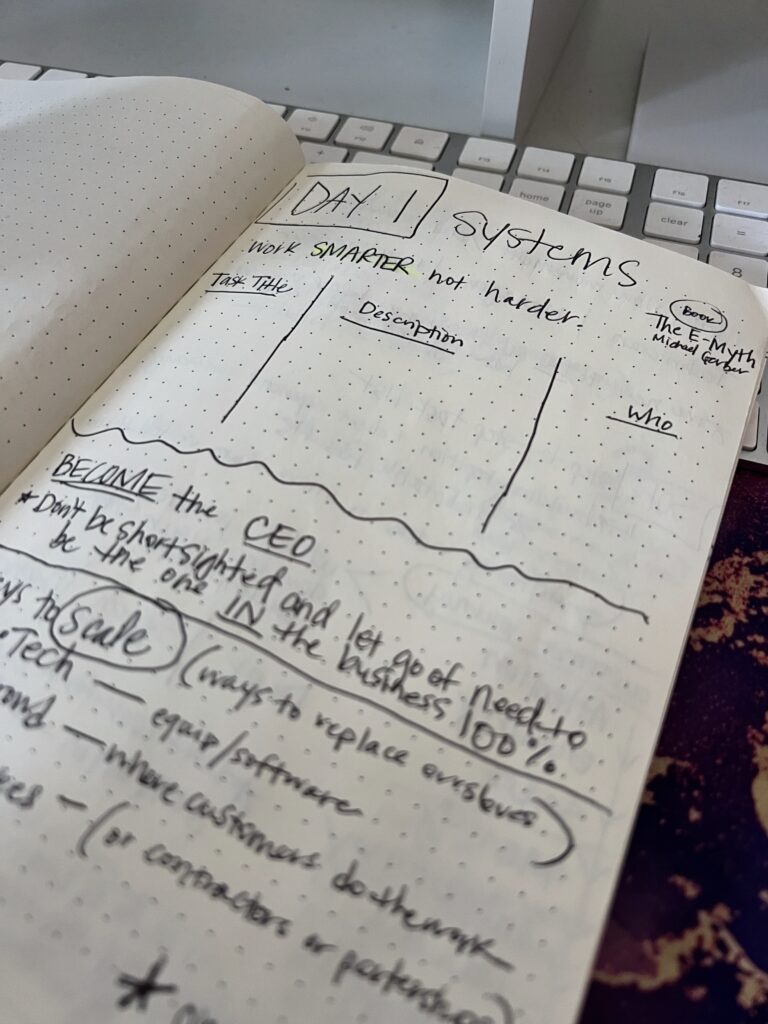 DAY 1 Systems
work SMARTER not harder.
Book
The E-Myth
Michael Gerber
Task Title
Description
Who
BECOME the CEO
* Don't be shortsighted and let go of need to
be the one IN the business 100%.
to scale (ways to replace ourselves)
• Tech — equip/software
— where customers do the work
— (or contractors or partnerships)
*
home
page up
clear
=
8
+
F13
F14
F15
F16
F17